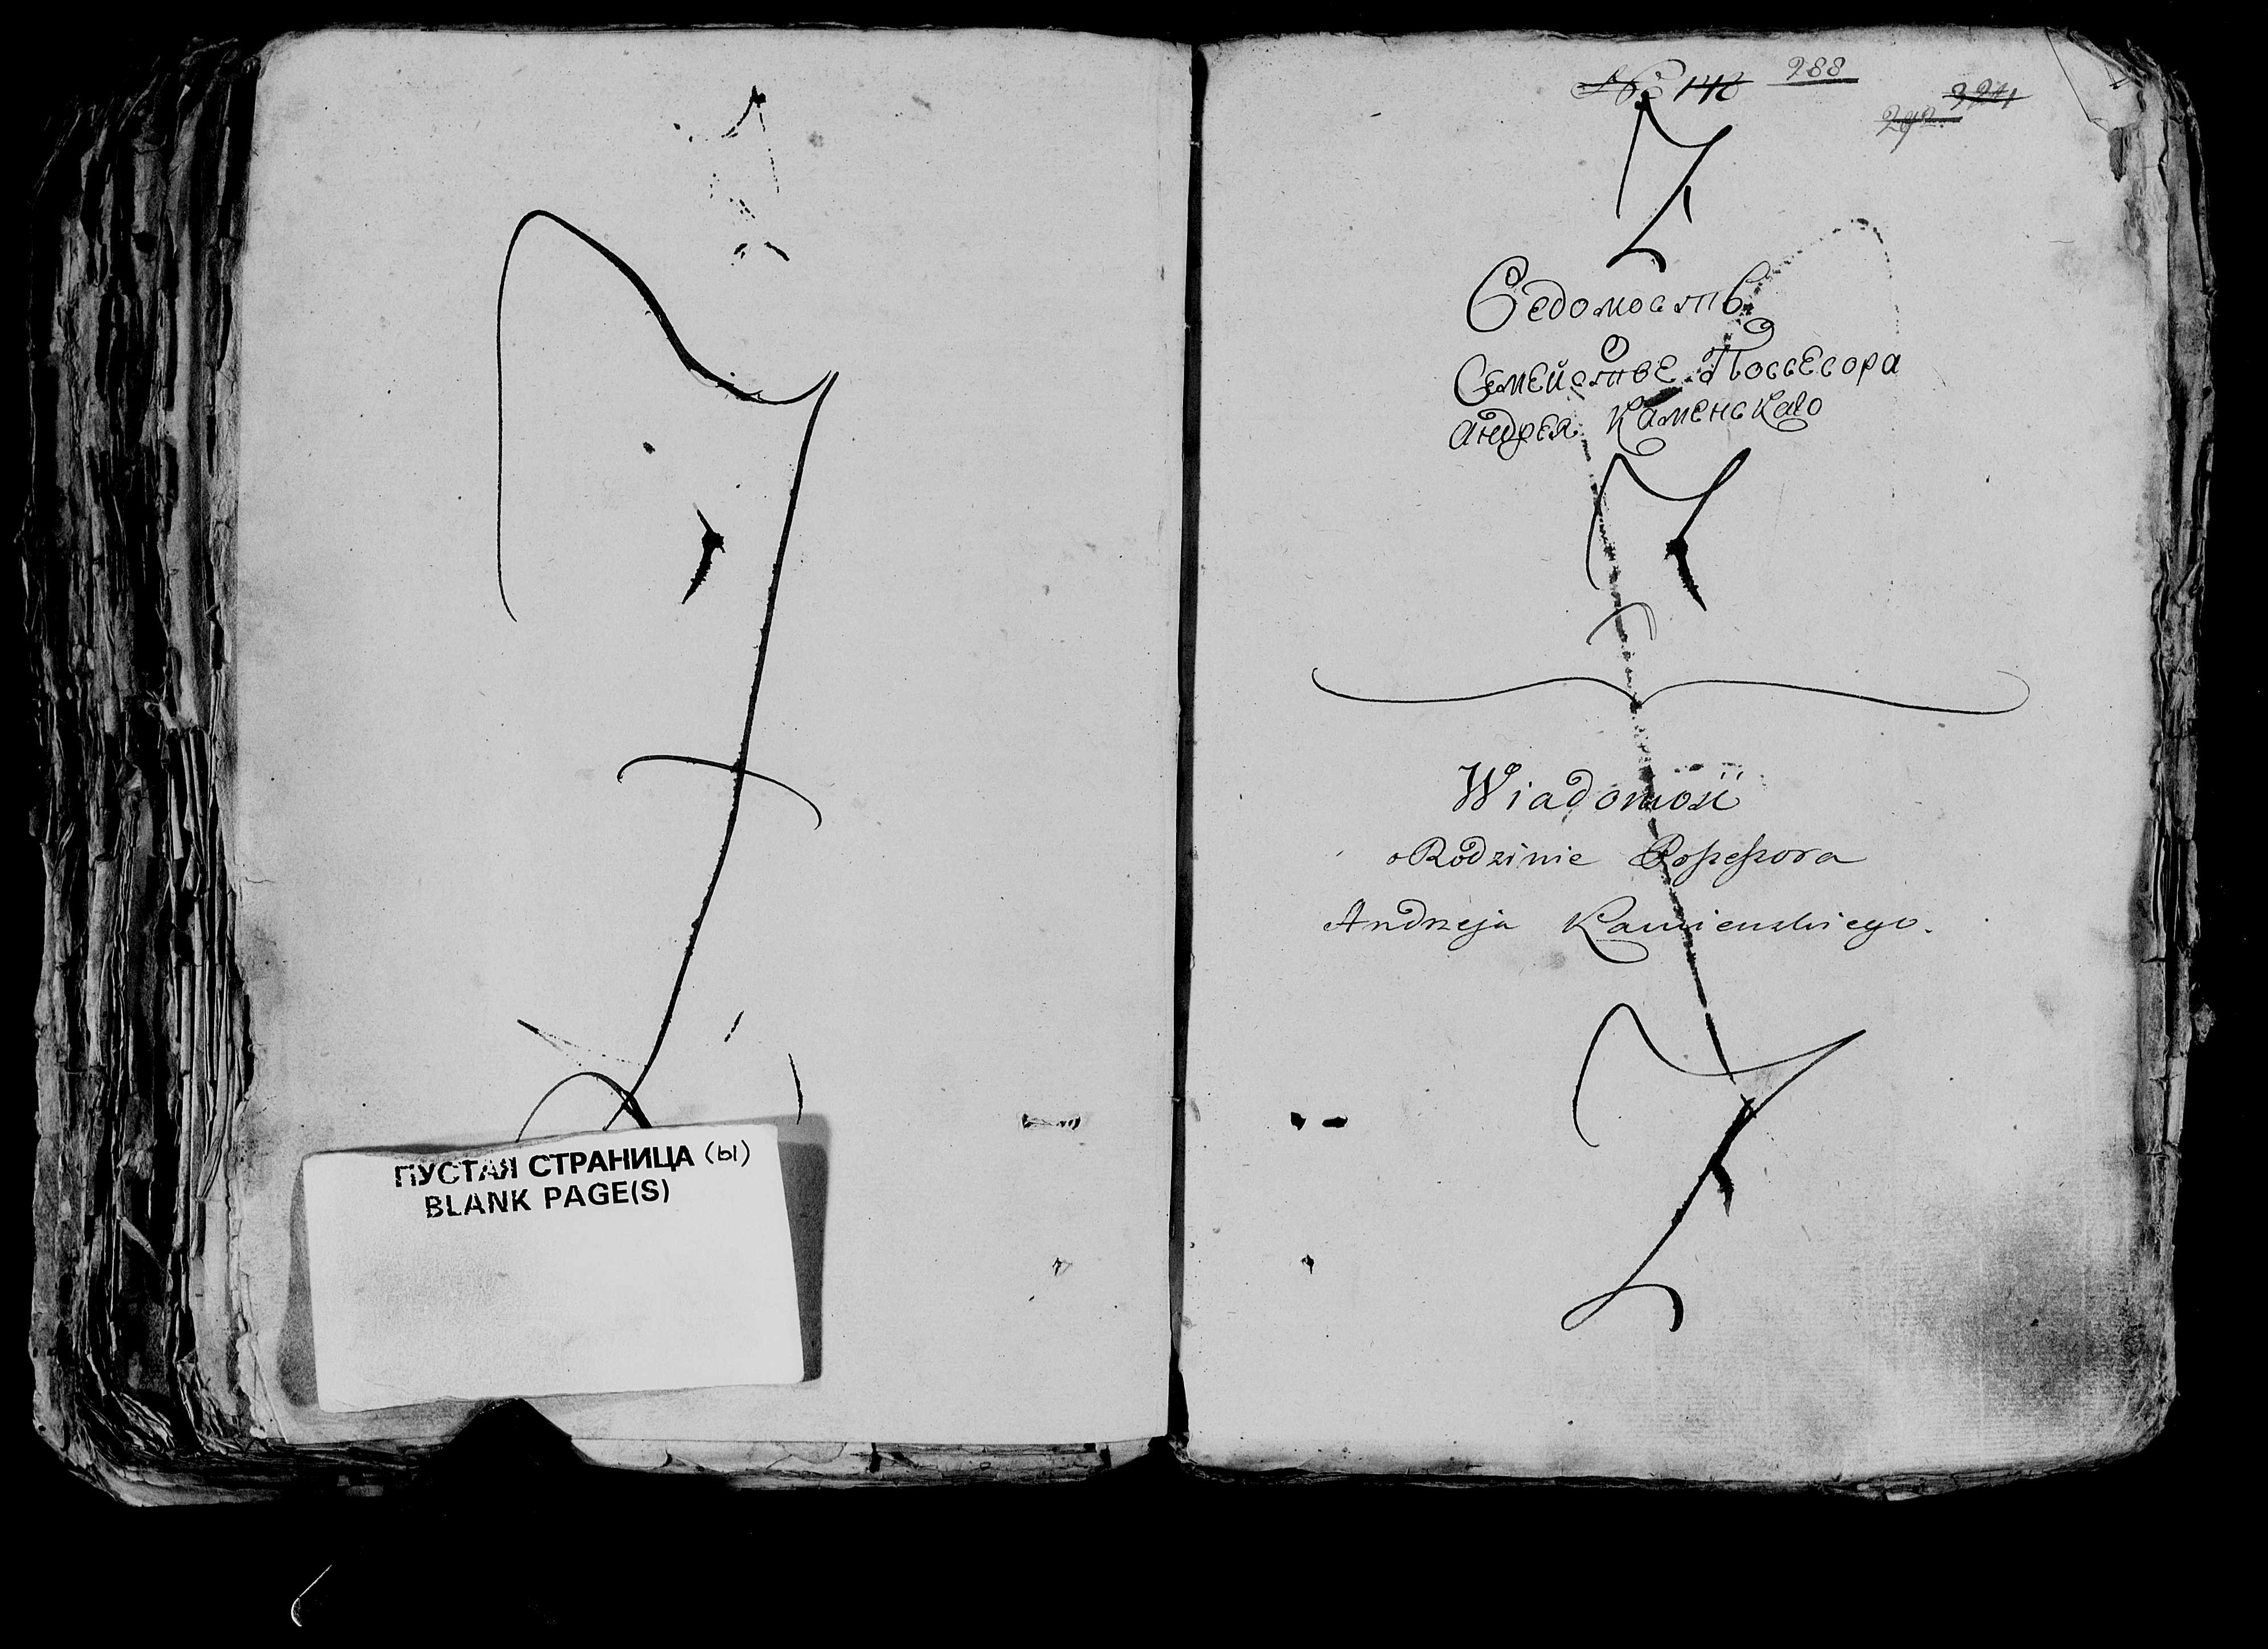 ПУСТАЯ СТРАНИЦА (Ы)
BLANK PAGE(S)
№ 148 288
Ведомость
О
Семействе Поссесора
Андрея Каменскаго
Wiadomość
o Rodzinie Possessora
Andrzeja Kamienskiego.